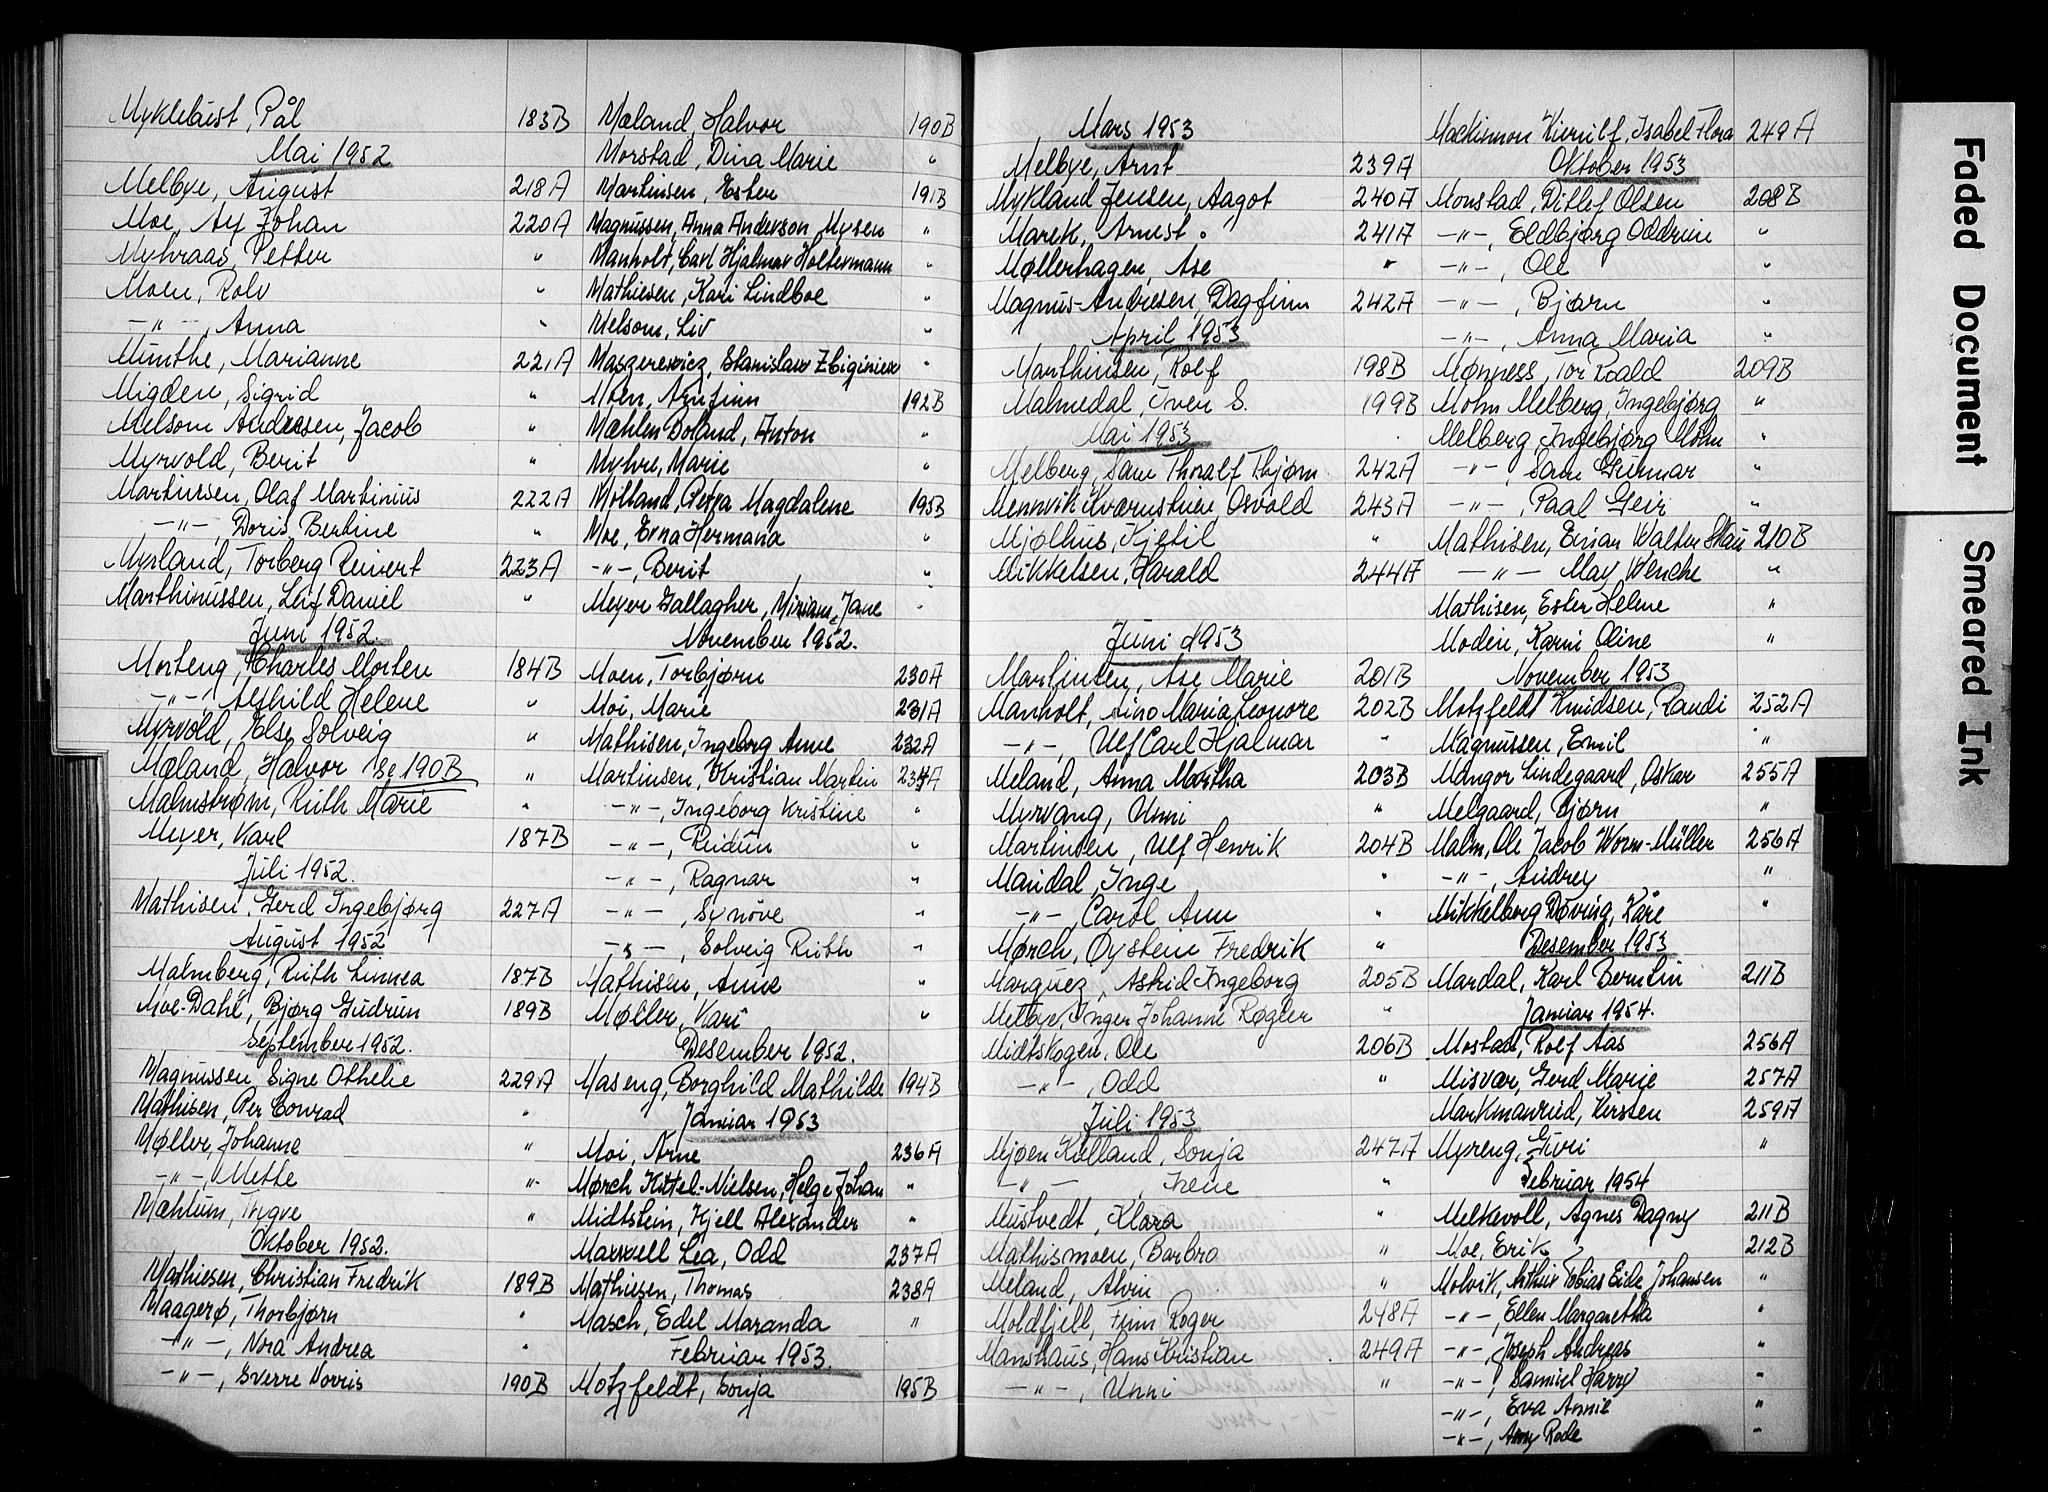 Myklebust, Pål 183B
Mai 1952
Melbye, August 218A
Moe, Johan 220A
Myhraas, Petter "
Moen, Rolv "
-"-, Anna "
Munthe, Marianne 221A
Migden, Sigrid "
Melsom Andresen, Jacob "
Myrvold, Berit "
Martinsen, Olaf Martinius 222A
-"-, Doris Bertine "
Myrland, Torberg Reinert 223A
Marthinussen, Leif Daniel "
Juni 1952.
Morteng, Charles Morten 184B
-"-, Alfhild Helene "
Myrvold, Else Solveig "
Mæland, Halvor se 190B "
Malmstrøm, Ruth Marie "
Meyer, Karl 187B
Juli 1952.
Mathisen, Gerd Ingebjørg 227A
August 1952
Malmberg, Ruth Linnea 187B
Moe-Dahl, Bjørg Gudrun 189B
September 1952.
Magnussen, Signe Othelie 229A
Mathisen, Per Conrad "
Møller, Johanne "
-"-, Mette "
Mæhlum, Trygve "
Oktober 1952.
Mathiesen, Christian Fredrik 189B
Maagerø, Thorbjørn "
-"-, Nora Andrea "
-"-, Sverre Norris 190B
Mæland, Halvor 190B
Morstad, Dina Marie "
Martinsen, Ester 191B
Magnussen, Anna Anderson Mysen "
Manholt, Carl Hjalmar Holtermann "
Mathiesen, Kari Lindboe "
Melsom, Liv "
Maszerewicz, Stanislaw Zbiginiew "
Moen, Arnfinn 192B
Mæhlen Boland, Anton "
Myhre, Marie "
Molland, Petra Magdalene 193B
Moe, Erna Hermana "
-"-, Berit "
Meyer Gallagher, Miriam Jane "
November 1952.
Moen, Torbjørn 230A
Moi, Marie 231A
Mathisen, Ingeborg Anne 232A
Martinsen, Kristian Martin 234A
-"-, Ingeborg Kristine "
-"-, Reidun "
-"-, Ragnar "
-"-, Synöve "
-"-, Solveig Ruth "
Mathisen, Anne "
Møller, Kari "
Desember 1952.
Maseng, Borghild Mathilde 194B
Januar 1953
Moi, Arne 236A
Mørch Kittel-Nielsen, Helge Johan "
Midtstein, Kjell Alexander "
Maxwell Lea, Odd 237A
Mathiesen, Thomas 238A
Masch, Edel Maranda "
Februar 1953.
Motzfeldt, Sonja 195B
Mars 1953
Melbye, Arnt 239A
Mykland Jensen, Aagot 240A
Marek, Arnest 241A
Møllerhagen, Ase "
Magnus-Andresen, Dagfinn 242A
April 1953
Marthinsen, Rolf 198B
Malmedal, Iver S. 199B
Mai 1953
Melberg, Sam Thoralf Thjøm 242A
Mennvik Kværnstuen, Osvald 243A
Mjølhus, Kjetil "
Mikkelsen, Harald 244A
Juni 1953
Martinsen, Ase Marie 201B
Manholt, Aino Maria Leonore 202B
-"-, Ulf Carl Hjalmar "
Meland, Anna Martha 203B
Myrvang, Unni "
Martinsen, Ulf Henrik 204B
Mandal, Inge "
-"-, Carol Ann "
Mørch, Oystein Fredrik "
Marquez, Astrid Ingeborg 205B
Melbye, Inger Johanne Røgler "
Midtskogen, Ole 206B
-"-, Odd "
Juli 1953
Mjøen Kielland, Sonja 247A
-"-, Irene "
Mustvedt, Klara "
Mathismoen, Barbro "
Meland, Alvin "
Moldfjell, Finn Roger 248A
Manshaus, Hans Kristian 249A
-"-, Unni "
Mackinnon Kierulf, Isabel Flora 249A
Oktober 1953
Monstad, Ditlef Olsen 208B
-"-, Eldbjørg Oddrun "
-"-, Ole "
-"-, Bjørn "
-"-, Anna Maria "
Mønness, Tor Roald 209B
Mohn Melberg, Ingebjørg "
Melberg, Ingebjørg Mohn "
-"-, Sam Gunnar "
-"-, Paal Geir "
Mathisen, Einar Walter Skau 210B
-"- May Wenche "
Mathisen, Ester Helene "
Moden, Karin Oline "
November 1953
Motzfeldt Knudsen, Randi 252A
Magnussen, Emil "
Mangor Lindegaard, Oskar 255A
Melgaard, Bjørn "
Malm, Ole Jacob Worm-Müller 256A
-"-, Audrey "
Mikkelborg Døving, Kåre "
Desember 1953
Mardal, Karl Berntin 211B
Januar 1954.
Mostad, Rolf Aas 256A
Misvær, Gerd Marie 257A
Markmanrud, Kirsten 259A
Myreng, Guri "
Februar 1954
Melkevoll, Agnes Dagny 211B
Moe, Erik 212B
Molvik, Arthur Tobias Eide Johansen "
-"-, Ellen Margaretha "
-"-, Joseph Andreas "
-"-, Samuel Harry "
-"-, Eva Annie "
-"-, Amy Rode "
Faded Document
Smeared Ink